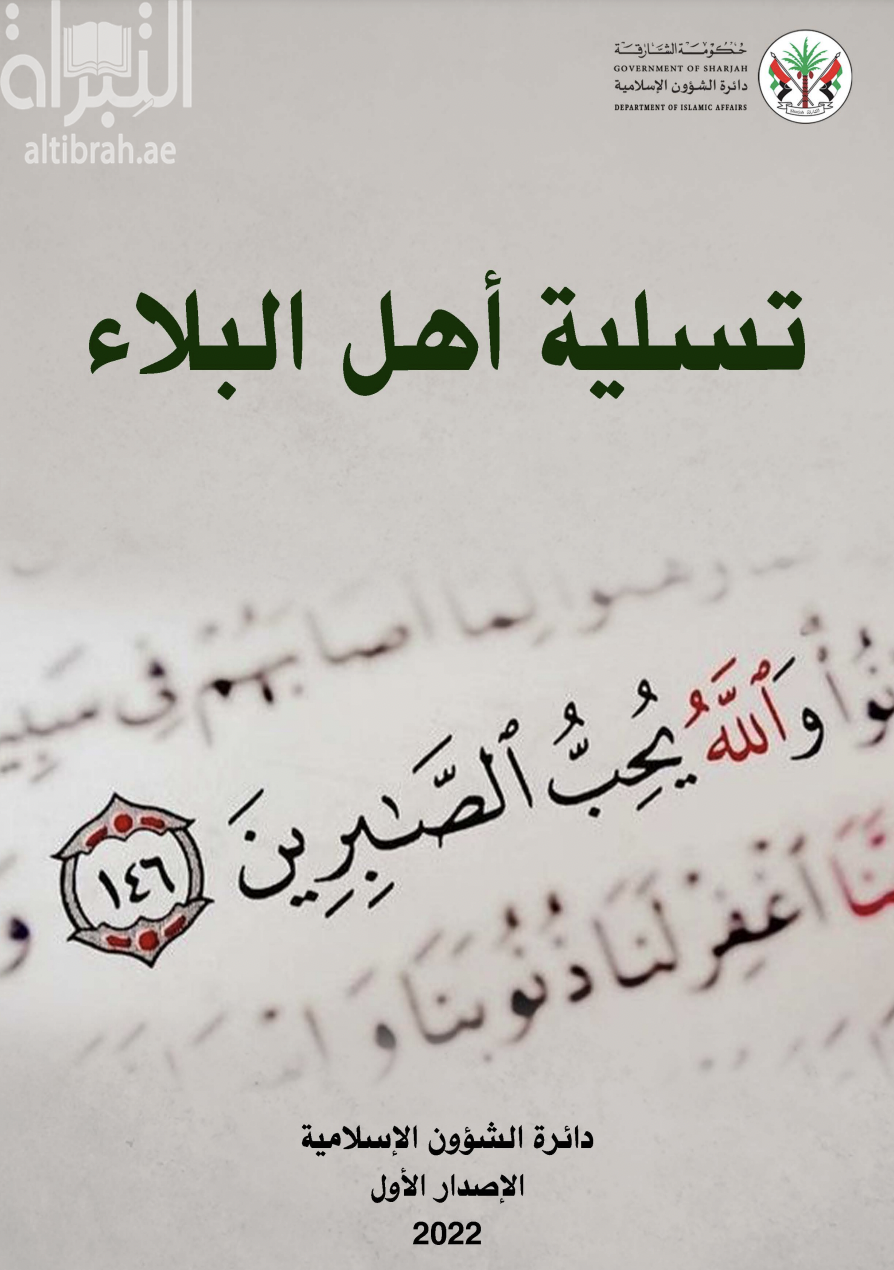 التبراة
altibrah.ae
حكومة الشارقة
GOVERNMENT OF SHARJAH
دائرة الشؤون الإسلامية
DEPARTMENT OF ISLAMIC AFFAIRS
تسلية أهل البلاء
لِمَا أَصَابَهُمْ فِي
وَٱللَّهُ يُحِبُّ ٱلصَّـٰبِرِينَ ١٤٦
ٱغْفِرْ لَنَا ذُنُوبَنَا وَ
دائرة الشؤون الإسلامية
الإصدار الأول
2022